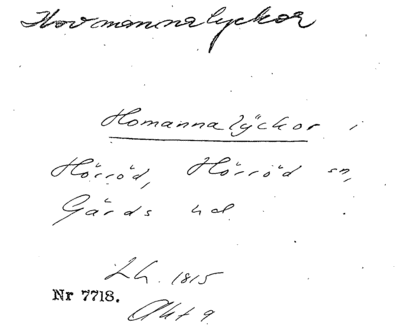 Hovmannalyckor
Homannalyckor i
Hörröd, Hörröd sn,
Gärds hd.
Lh. 1815
Nr 7718.
Akt 9